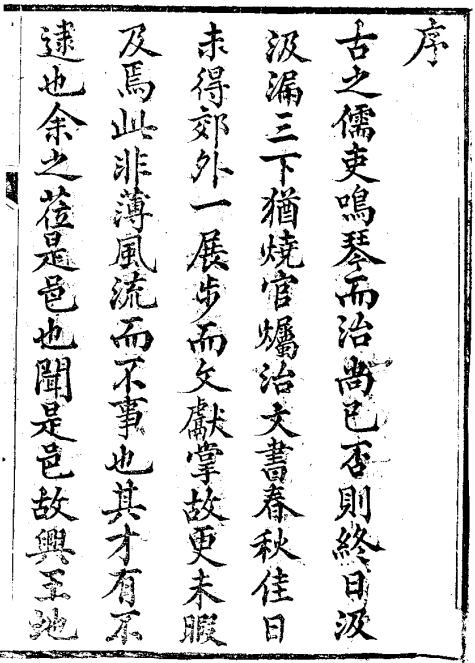 序
古之儒吏鳴琴而治尚已否則終日汲
汲漏三下猶燒官爥治文書春秋佳日
未得郊外一展步而文獻掌故更未暇
及焉此非薄風流而不事也其才有不
逮也余之莅是邑也聞是邑故興王地